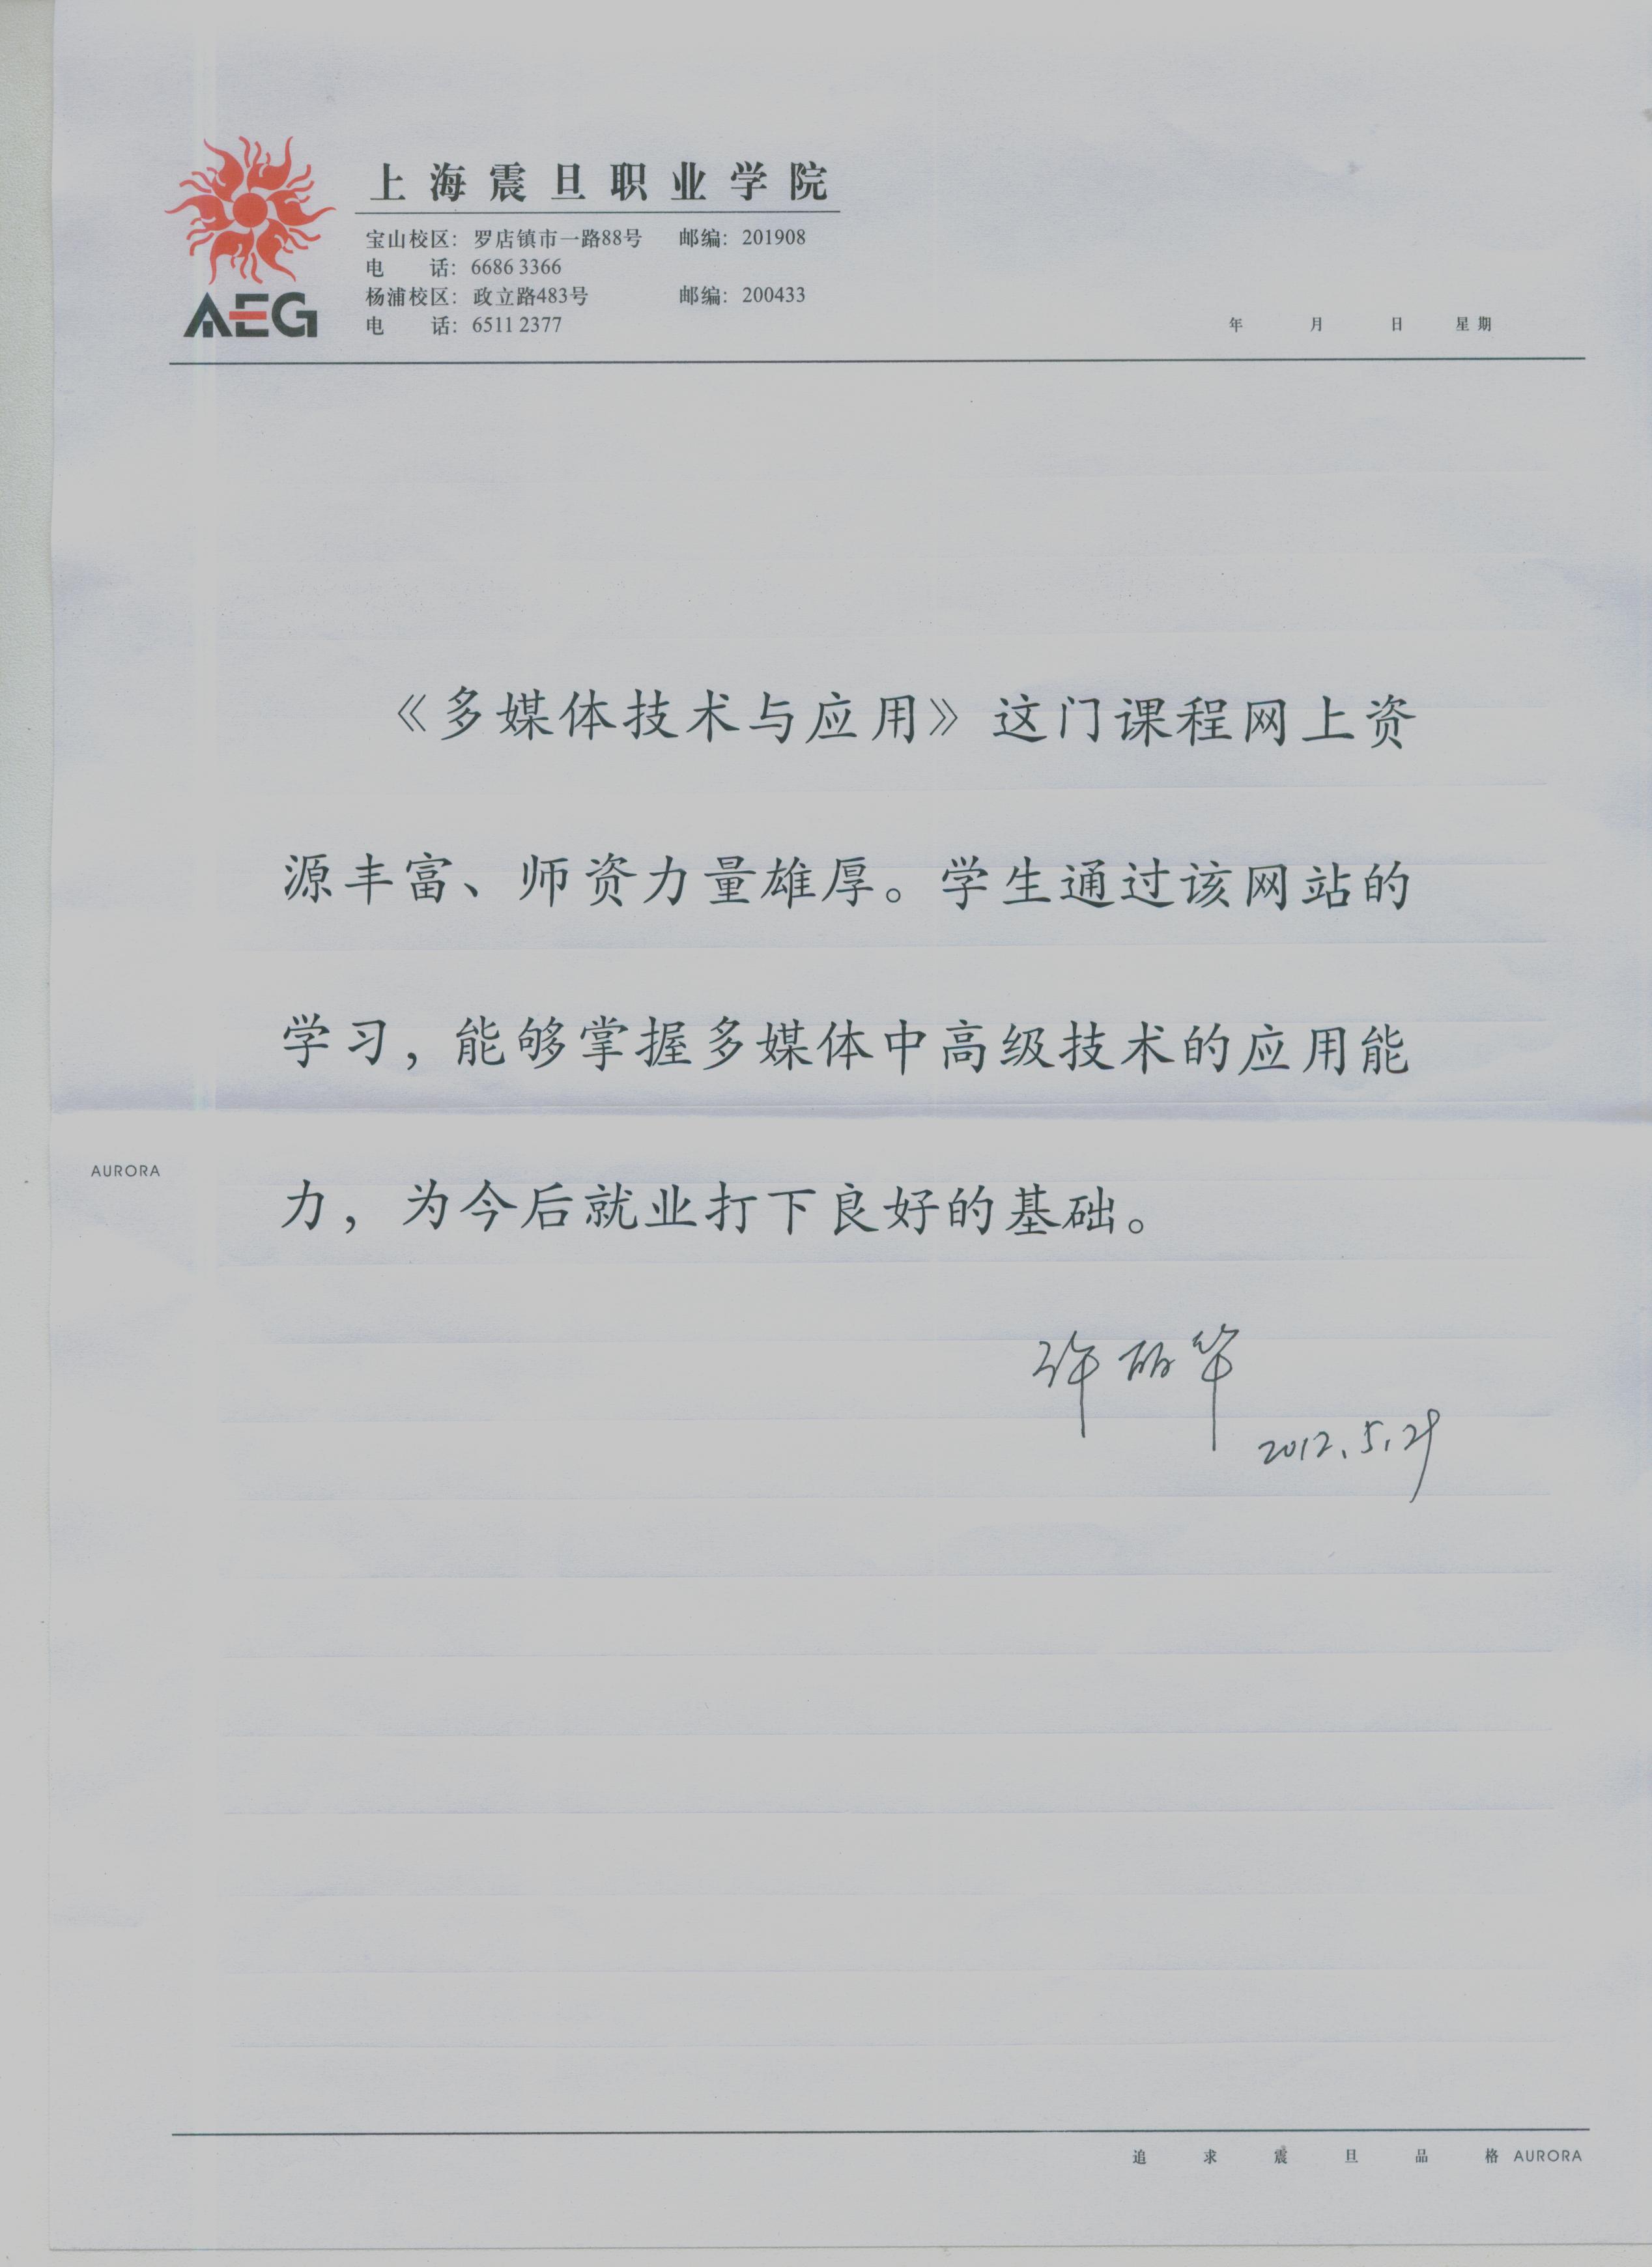 上海震旦职业学院
宝山校区：罗店镇市一路88号 邮编：201908
电 话：6686 3366
杨浦校区：政立路483号 邮编：200433
电 话：6511 2377
AEG
年 月 日 星期
《多媒体技术与应用》这门课程网上资
源丰富、师资力量雄厚。学生通过该网站的
学习，能够掌握多媒体中高级技术的应用能
AURORA
力，为今后就业打下良好的基础。
许丽华
2012.5.29
追求震旦品格 AURORA